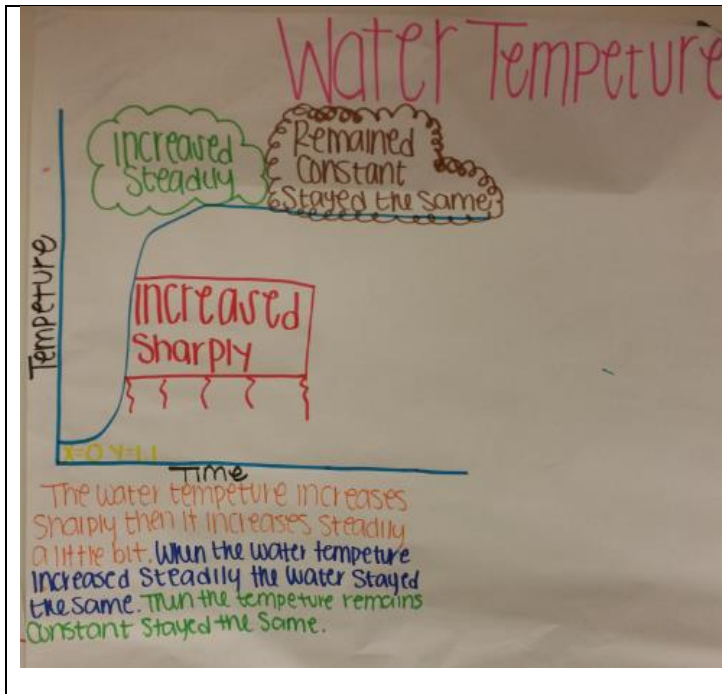 Water Tempeture
Increased
Steadily
Remained
Constant
Stayed the same
Tempeture
Increased
Sharply
X=0 Y=1.1
Time
The water tempeture increases
Sharply then it increases steadily
a little bit. When the water tempeture
increased steadily the water stayed
the same. Thun the tempeture remains
Constant Stayed the Same.